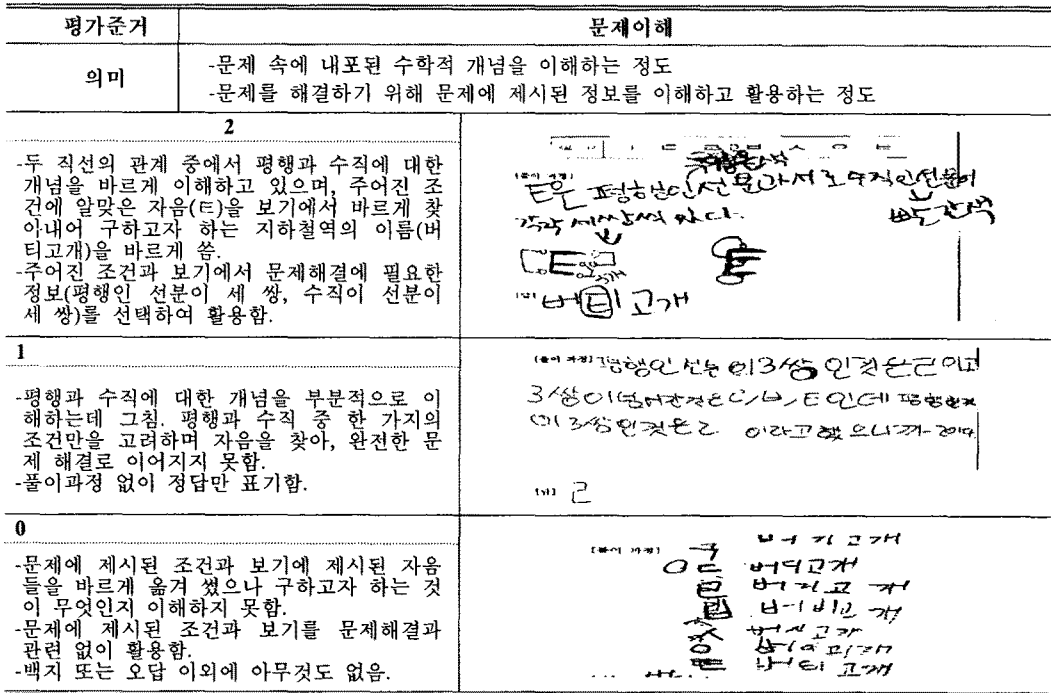 평가준거 문제이해
의미
-문제 속에 내포된 수학적 개념을 이해하는 정도
-문제를 해결하기 위해 문제에 제시된 정보를 이해하고 활용하는 정도
2
-두 직선의 관계 중에서 평행과 수직에 대한
개념을 바르게 이해하고 있으며, 주어진 조
건에 알맞은 자음(ㅌ)을 보기에서 바르게 찾
아내어 구하고자 하는 지하철역의 이름(버
티고개)을 바르게 씀.
-주어진 조건과 보기에서 문제해결에 필요한
정보(평행인 선분이 세 쌍, 수직이 선분이
세 쌍)를 선택하여 활용함.
[풀이 과정]
ㅌ은 평행인선분과서로수직인선분이
각각 세쌍씩 있다.
빨간색
[답] 버티고개
1
-평행과 수직에 대한 개념을 부분적으로 이
해하는데 그침. 평행과 수직 중 한 가지의
조건만을 고려하며 자음을 찾아, 완전한 문
제 해결로 이어지지 못함.
-풀이과정 없이 정답만 표기함.
[풀이 과정] 평행인 선분이3쌍 인것은ㄹ이고
이3쌍인것은ㄹ 이라고했으니까
[답] ㄹ
0
-문제에 제시된 조건과 보기에 제시된 자음
들을 바르게 옮겨 썼으나 구하고자 하는 것
이 무엇인지 이해하지 못함.
-문제에 제시된 조건과 보기를 문제해결과
관련 없이 활용함.
-백지 또는 오답 이외에 아무것도 없음.
[풀이 과정]
버디고개
버비고개
버티고개